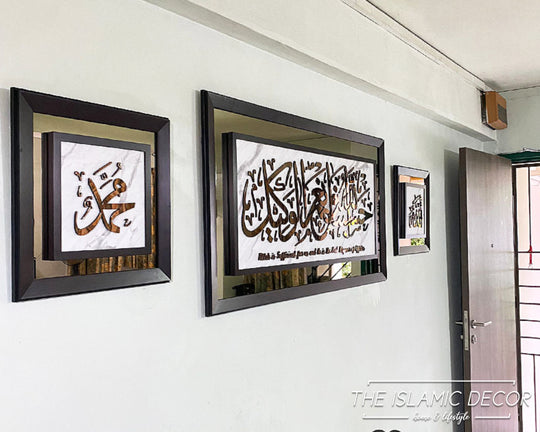 محمد
حسبنا الله ونعم الوكيل
Allah is Sufficient for us and He is the Best
THE ISLAMIC DECOR
home & lifestyle